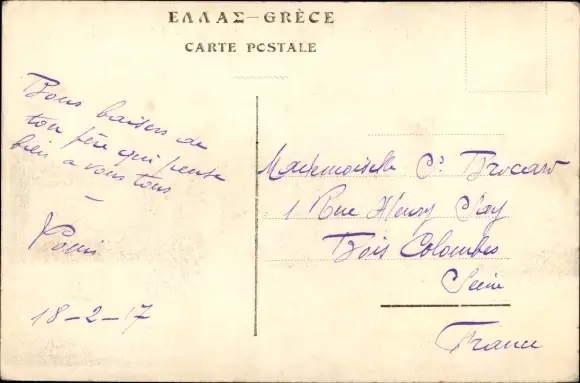 ΕΛΛΑΣ–GRÈCE
CARTE POSTALE
Bons baisers de
ton père qui pense
bien a vous tous
18-2-17
Mademoiselle C.
1 Rue Henry Say
Bois Colombes
Seine
France